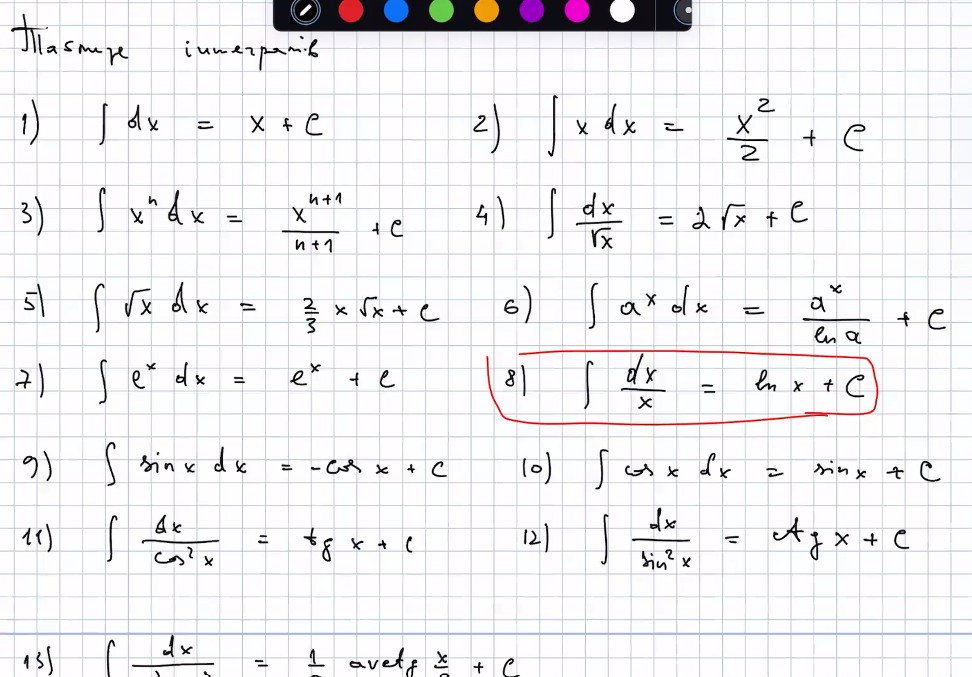 Таблиця інтегралів
1) ∫ dx = x + C 2) ∫ x dx = x²/2 + C
3) ∫ xⁿ dx = xⁿ⁺¹/(n+1) + C 4) ∫ dx/√x = 2√x + C
5) ∫ √x dx = 2/3 x √x + C 6) ∫ aˣ dx = aˣ/ln a + C
7) ∫ eˣ dx = eˣ + C 8) ∫ dx/x = ln x + C
9) ∫ sin x dx = -cos x + C 10) ∫ cos x dx = sin x + C
11) ∫ dx/cos² x = tg x + C 12) ∫ dx/sin² x = ctg x + C
13) ∫ dx = 1 arctg x + C